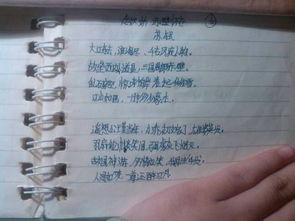 念奴娇 赤壁怀古
苏轼
大江东去，浪淘尽，千古风流人物。
故垒西边，人道是，三国周郎赤壁。
乱石穿空，惊涛拍岸，卷起千堆雪。
江山如画，一时多少豪杰。
遥想公瑾当年，小乔初嫁了，雄姿英发。
羽扇纶巾，谈笑间，樯橹灰飞烟灭。
故国神游，多情应笑我，早生华发。
人生如梦，一尊还酹江月。